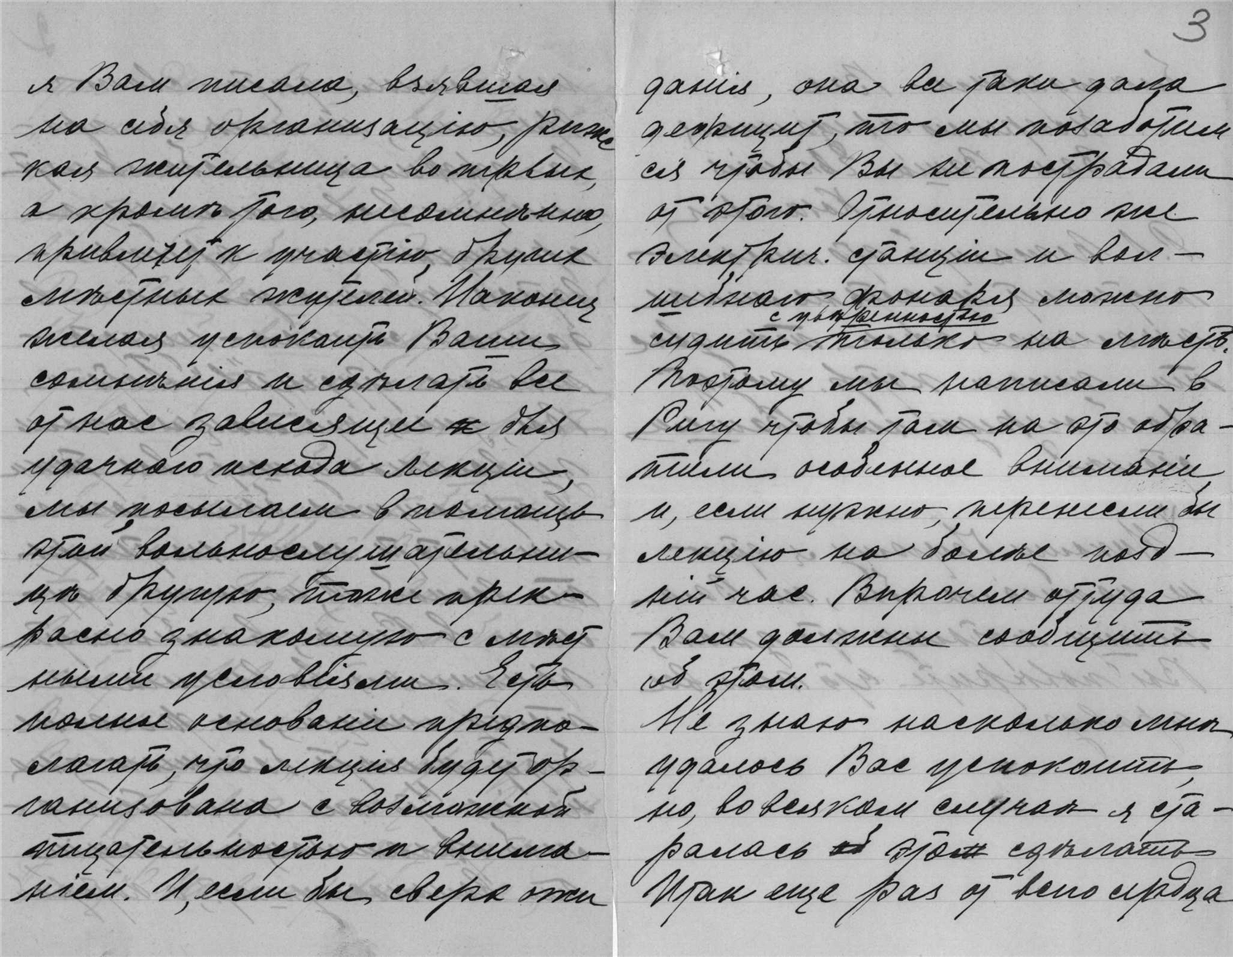 я Вам писала, взявшая
на себя организацію, рижс
кая жительница во первых,
а кромѣ того, несомнѣнно,
привлечет к участію других
мѣстных жителей. Наконец
желая успокоить Ваши
сомнѣнія и сдѣлать все
от нас зависящее для
удачного исхода лекціи,
мы посылаем в помощь
этой вольнослушательни-
цѣ другую, тоже прек-
расно знакомую с мѣст
ными условіями. Есть
полное основаніе предпо-
лагать, что лекція будет ор-
ганизована с возможной
тщательностью и внима-
ніем. И, если бы сверх ожи
3
данія, она все таки дала
дефицит, то мы позаботим
ся чтобы Вы не пострадали
от этого. Относительно же
электрич. станціи и вол-
шебнаго фонаря можно
с увѣренностью
судить только на мѣстѣ.
Поэтому мы написали в
Ригу чтобы там на это обра-
тили особенное вниманіе
и, если нужно, перенесли бы
лекцію на болѣе позд-
ній час. Впрочем оттуда
Вам должны сообщить
об этом.
Не знаю насколько мнѣ
удалось Вас успокоить,
но, во всяком случаѣ я ста-
ралась это сдѣлать
Итак еще раз от всего сердца